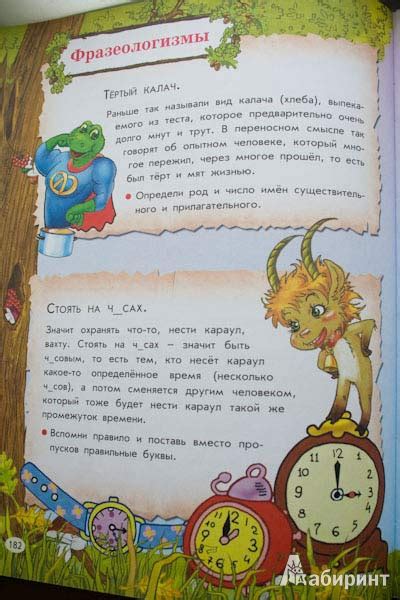 Фразеологизмы
Тёртый калач.
Раньше так называли вид калача (хлеба), выпека-
емого из теста, которое предварительно очень
долго мнут и трут. В переносном смысле так
говорят об опытном человеке, который мно-
гое пережил, через многое прошёл, то есть
был тёрт и мят жизнью.
• Определи род и число имён существитель-
ного и прилагательного.
Стоять на ч_сах.
Значит охранять что-то, нести караул,
вахту. Стоять на ч_сах – значит быть
ч_совым, то есть тем, кто несёт караул
какое-то определённое время (несколько
ч_сов), а потом сменяется другим человеком,
который тоже будет нести караул такой же
промежуток времени.
• Вспомни правило и поставь вместо про-
пусков правильные буквы.
182
Лабиринт